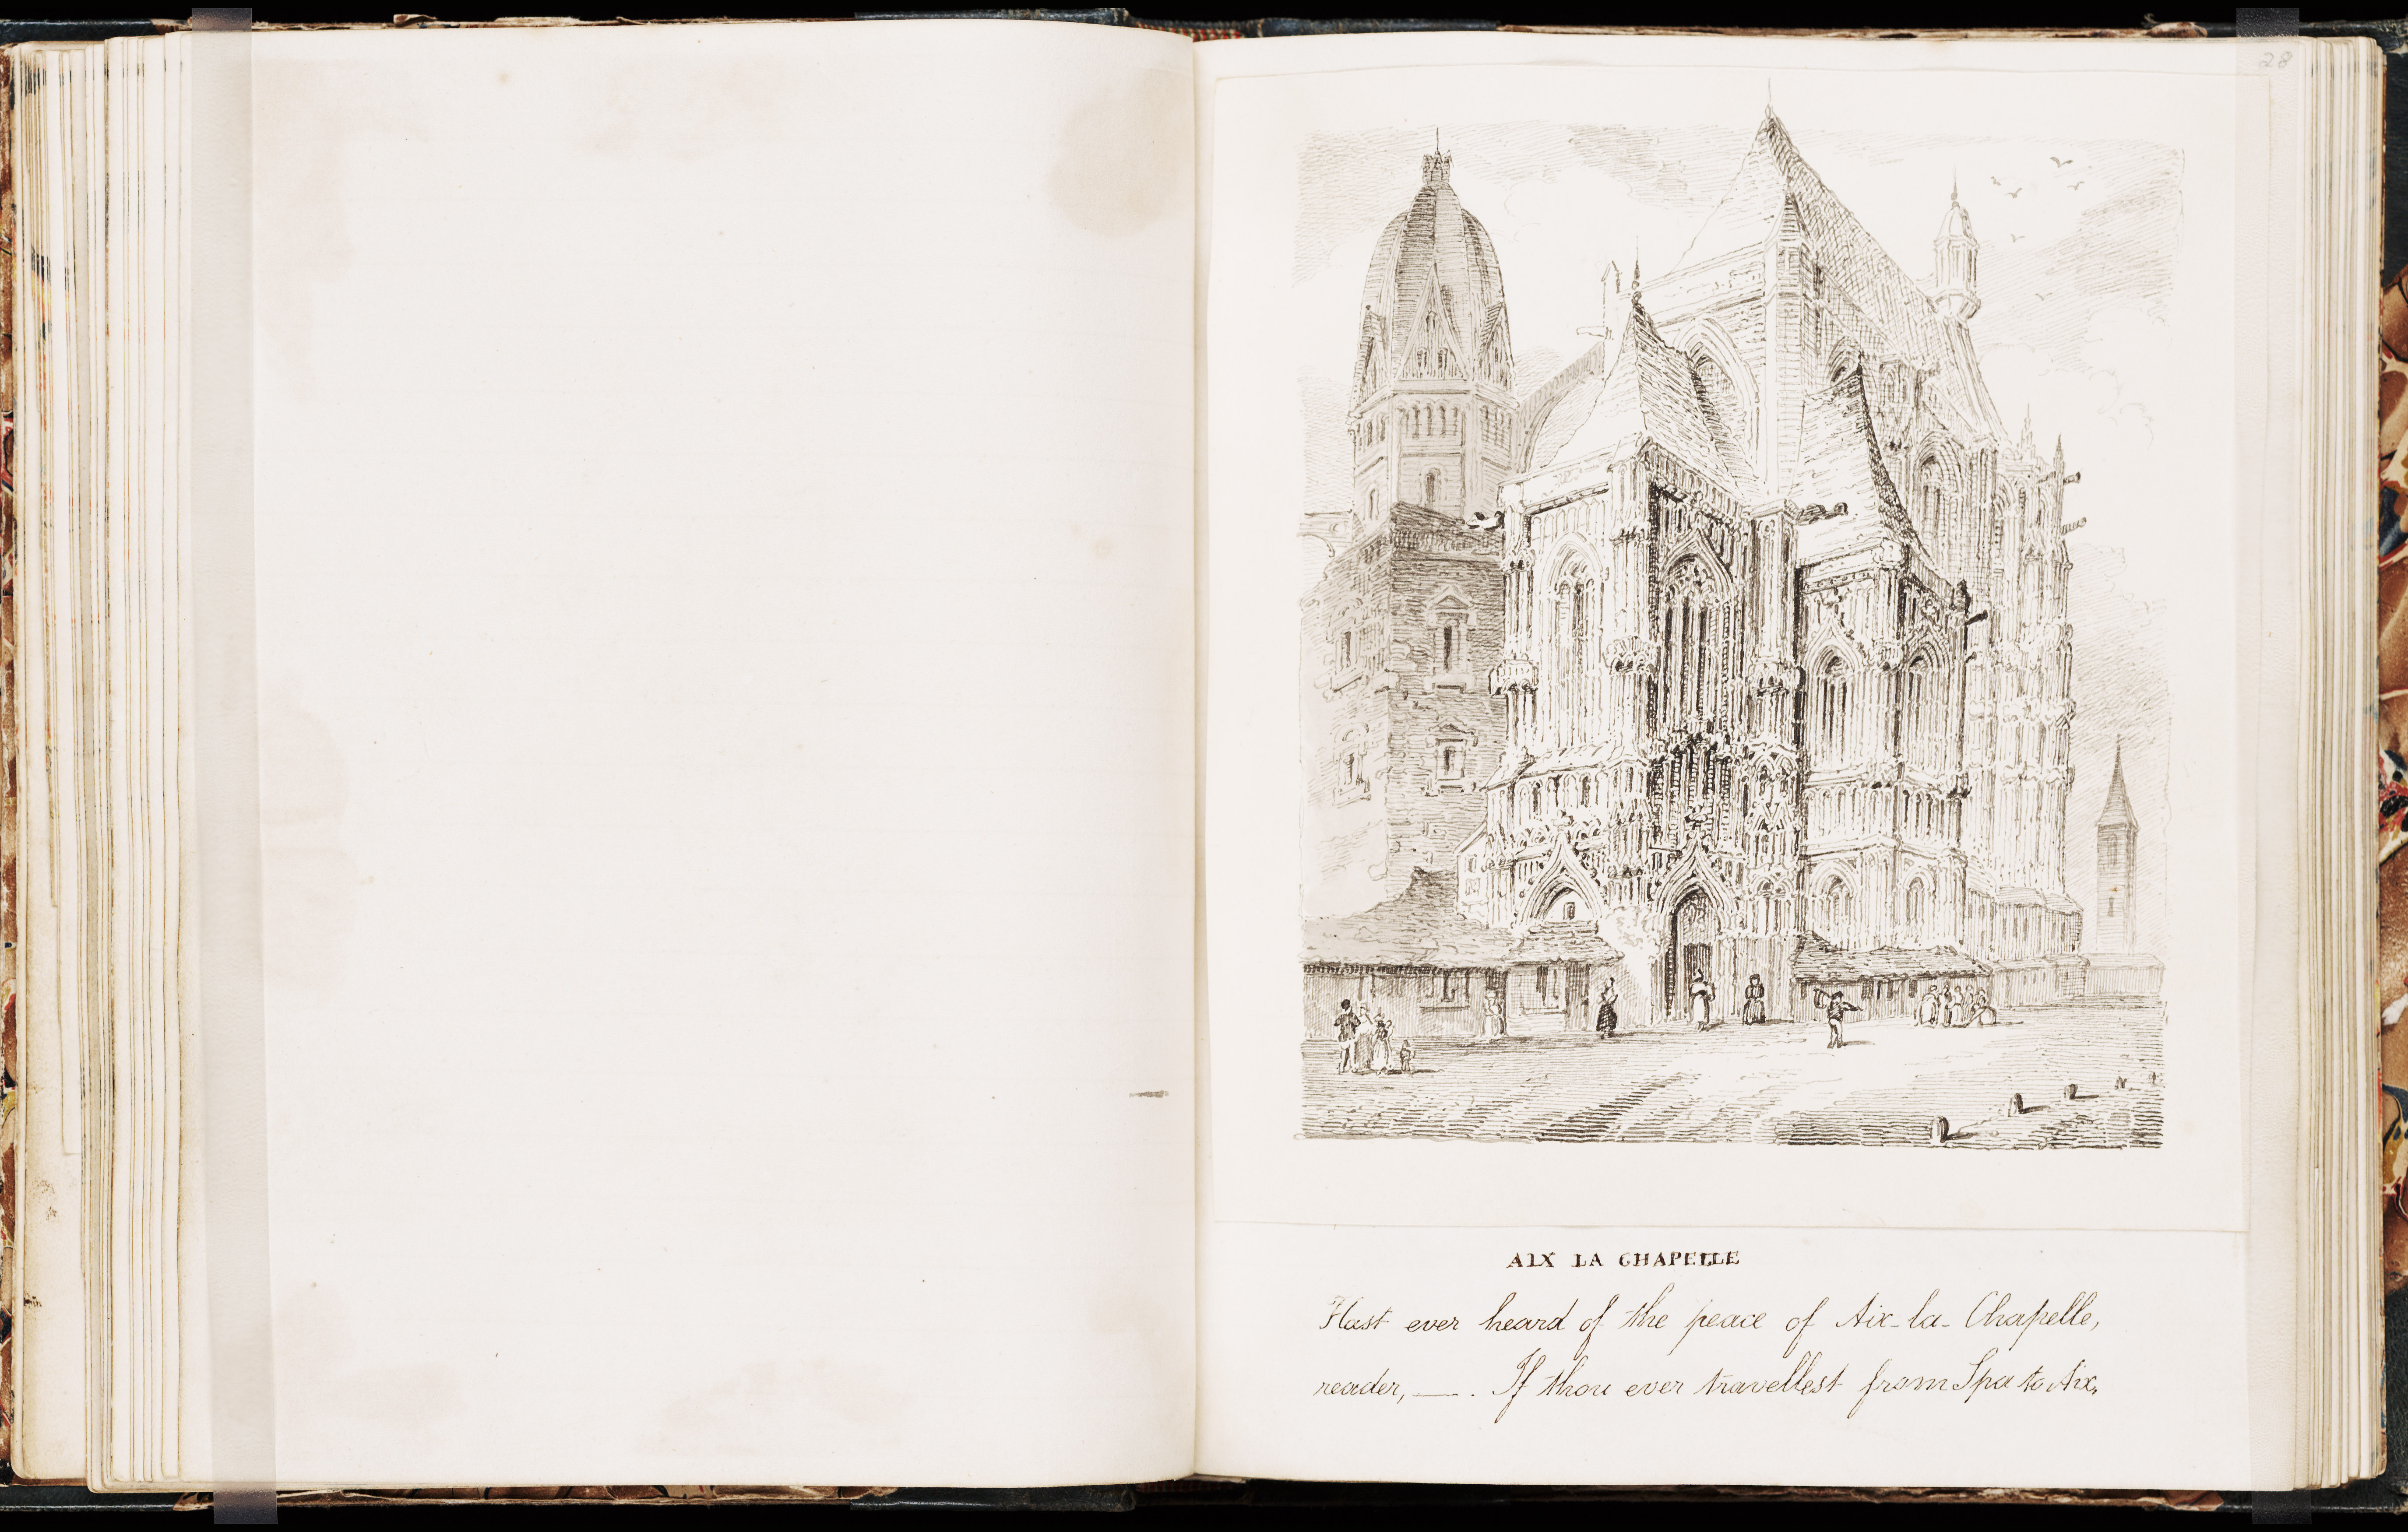 28
AIX LA CHAPELLE
Hast ever heard of the peace of Aix-la-Chapelle,
reader, —. If thou ever travellest from Spa to Aix,